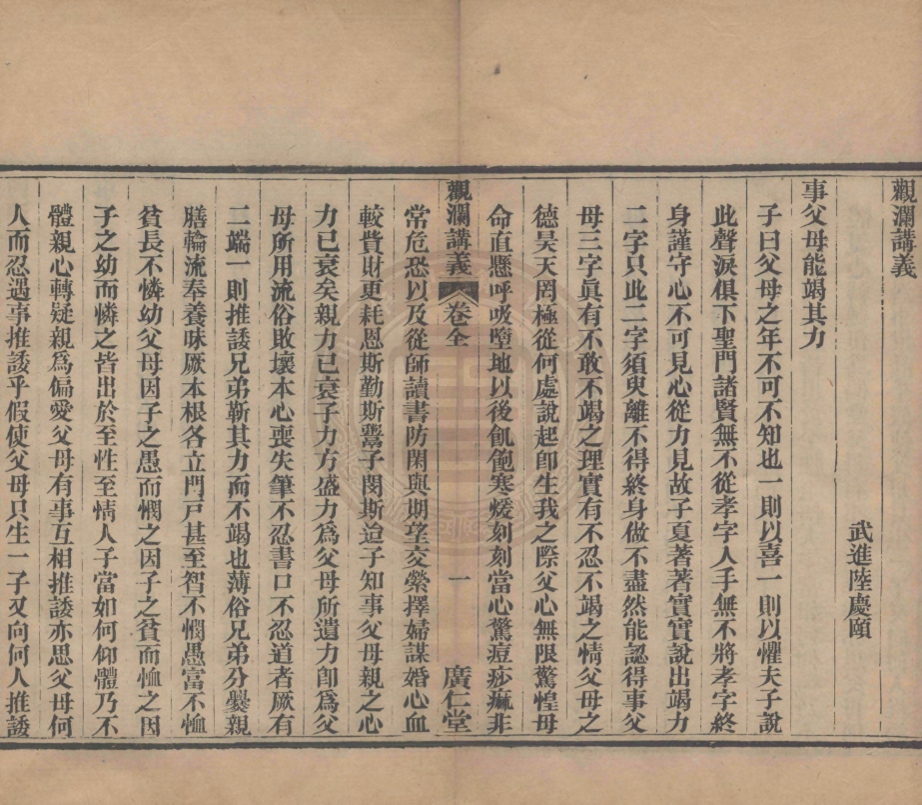 觀瀾講義
武進陸慶頤
事父母能竭其力
子曰父母之年不可不知也一則以喜一則以懼夫子說
此聲淚俱下聖門諸賢無不從孝字入手無不將孝字終
身謹守心不可見心從力見故子夏著著實實說出竭力
二字只此二字須臾離不得終身做不盡然能認得事父
母三字眞有不敢不竭之理實有不忍不竭之情父母之
德昊天罔極從何處說起卽生我之際父心無限驚惶母
命直懸呼吸墮地以後飢飽寒煖刻刻當心驚痘痧痲非
觀瀾講義 卷全 一 廣仁堂
常危恐以及從師讀書防閑與期望交縈擇婦謀婚心血
較貲財更耗恩斯勤斯鬻子閔斯迨子知事父母親之心
力已衰矣親力已衰子力方盛力爲父母所遺力卽爲父
母所用流俗敗壞本心喪失筆不忍書口不忍道者厥有
二端一則推諉兄弟靳其力而不竭也薄俗兄弟分爨親
膳輪流奉養昧厥本根各立門戸甚至智不憫愚富不恤
貧長不憐幼父母因子之愚而憫之因子之貧而恤之因
子之幼而憐之皆出於至性至情人子當如何仰體乃不
體親心轉疑親爲偏愛父母有事互相推諉亦思父母何
人而忍遇事推諉乎假使父母只生一子又向何人推諉